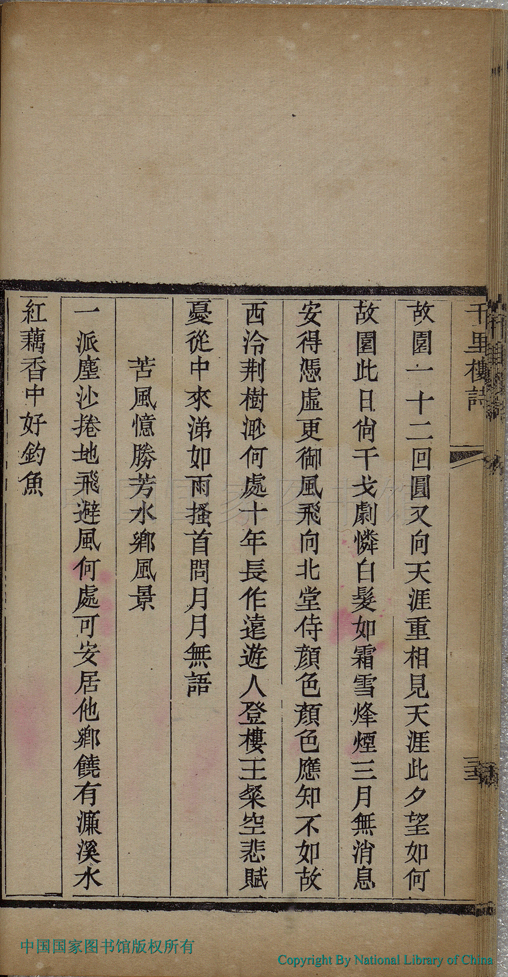 千里樓詩
故園一十二回圓又向天涯重相見天涯此夕望如何
故園此日尙干戈劇憐白髮如霜雪烽煙三月無消息
安得憑虛更御風飛向北堂侍顏色顏色應知不如故
西泠荆樹渺何處十年長作遠遊人登樓王粲空悲賦
憂從中來涕如雨搔首問月月無語
苦風憶勝芳水鄉風景
一派塵沙捲地飛避風何處可安居他鄉饒有濂溪水
紅藕香中好釣魚
中国国家图书馆版权所有
Copyright By National Library of China